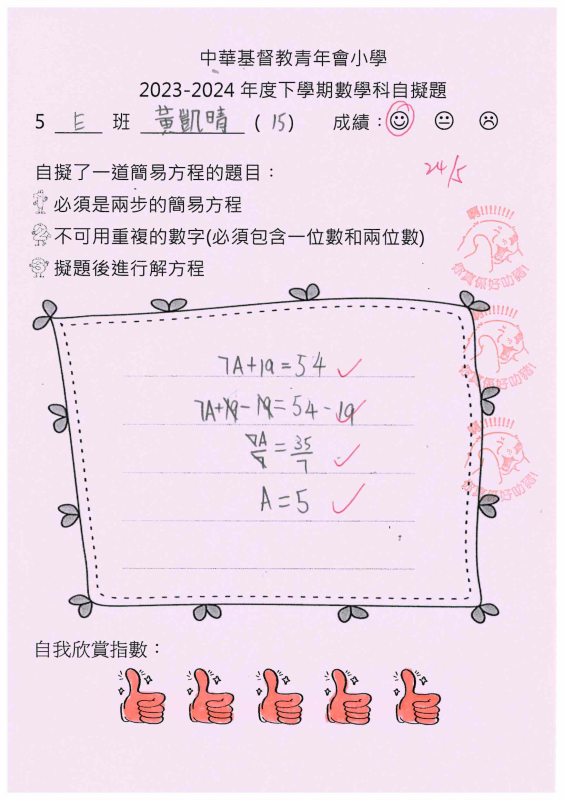 中華基督教青年會小學
2023-2024 年度下學期數學科自擬題
5 E 班 黃凱晴 ( 15 ) 成績：
24/5
自擬了一道簡易方程的題目：
必須是兩步的簡易方程
不可用重複的數字(必須包含一位數和兩位數)
擬題後進行解方程
7A+19=54
7A+19-19=54-19
7A/7=35/7
A=5
自我欣賞指數：